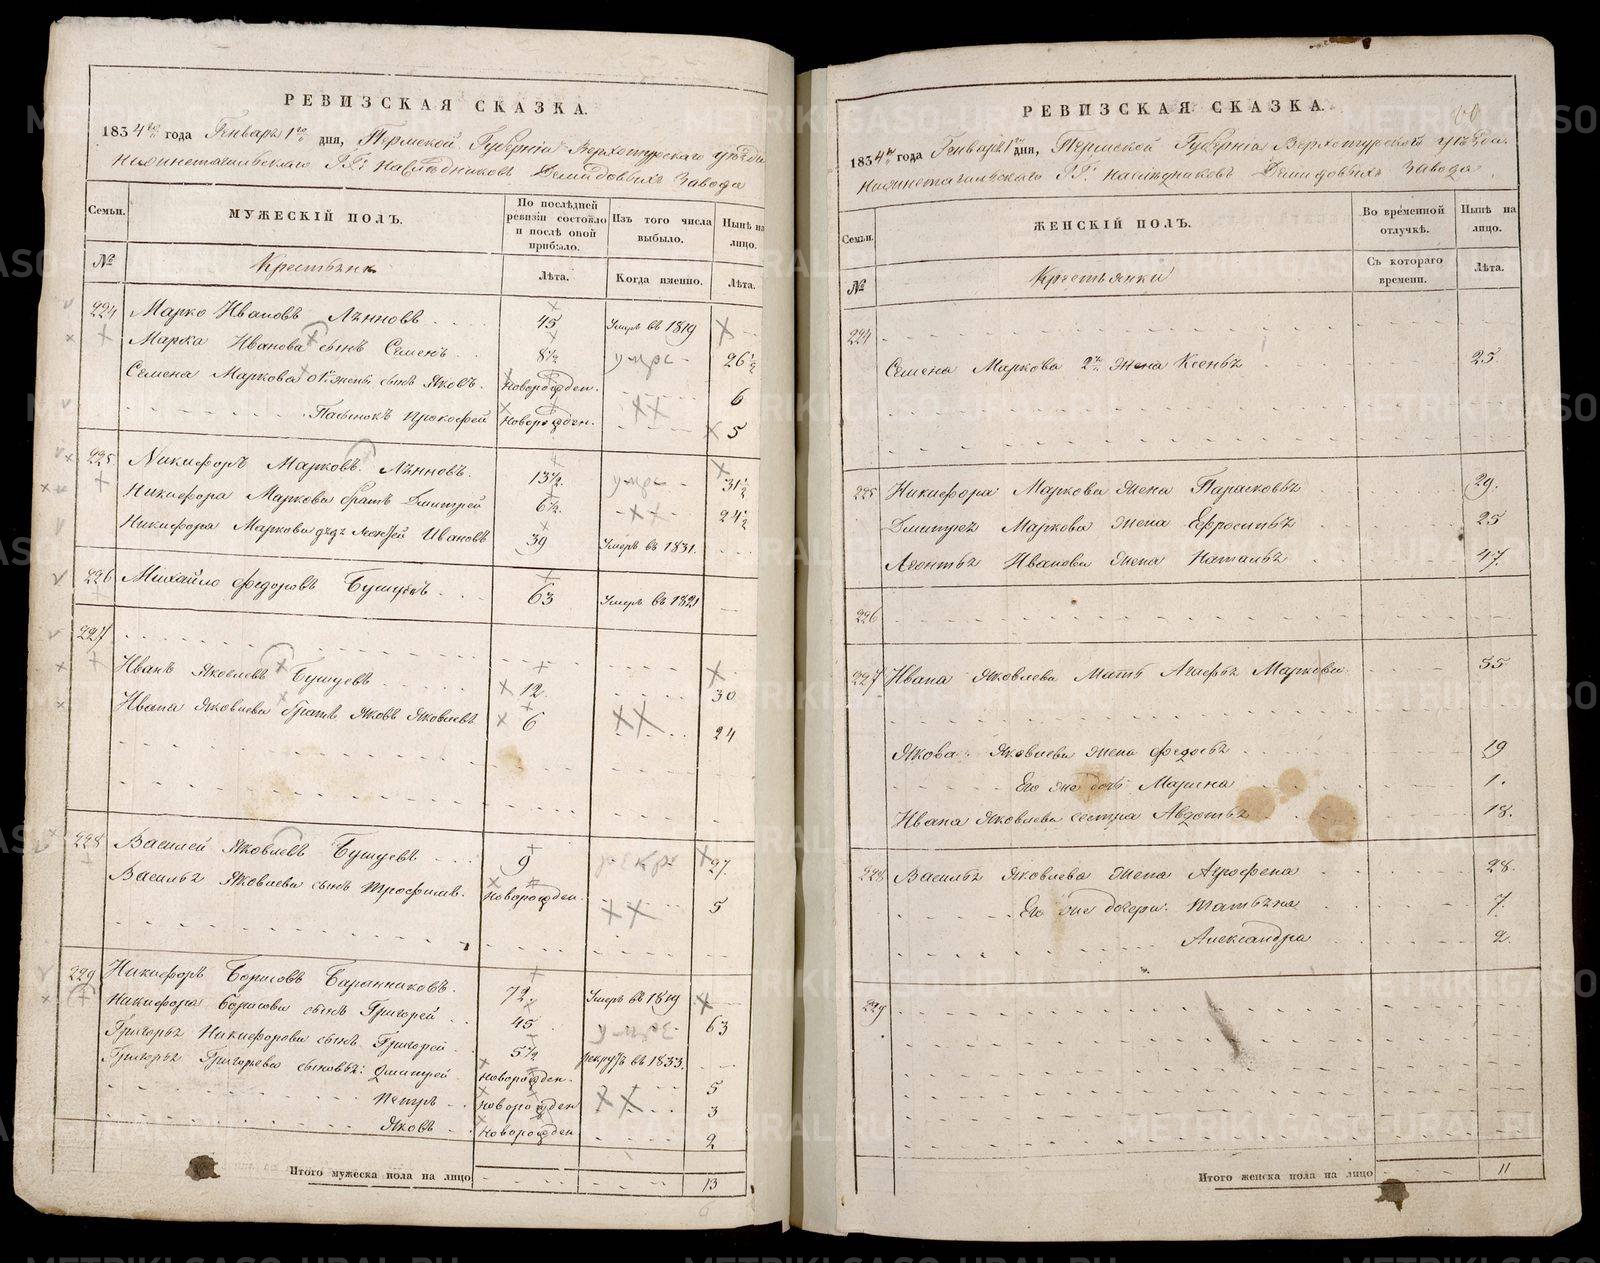 РЕВИЗСКАЯ СКАЗКА.
1834го года Генваря 1го дня, Пермской Губерніи Верхотурскаго уѣзда
Нижнетагильскаго ГГ. Наслѣдниковъ Демидовыхъ Завода
Семьи. МУЖЕСКІЙ ПОЛЪ. По послѣдней ревизіи состояло и послѣ оной прибыло. Изъ того числа выбыло. Нынѣ на лицо.
№ Крестьянъ Лѣта. Когда именно. Лѣта.
224 Марко Ивановъ 45 Умеръ въ 1819
Марка Иванова сынъ Семенъ 8½ 26½
Семена Маркова от 1й жены сынъ Яковъ. Новорожден. 6
Пасынокъ Прокофей Новорожден. 5
225 Никифоръ Марковъ 13½ 31½
Никифора Маркова братъ Дмитрей 6½ 24½
Никифора Маркова дядя Леонтей Ивановъ 39 Умеръ въ 1831.
226 Михайло Федоровъ Бушуевъ 63 Умеръ въ 1821
227
Иванъ Яковлевъ Бушуевъ 12 30
Ивана Яковлева братъ Яковъ Яковлевъ 6 24
228 Василей Яковлевъ Бушуевъ 9 27.
Василья Яковлева сынъ Трофимъ. Новорожден. 5
229 Никифоръ Борисовъ Баранниковъ. 72. Умеръ въ 1819
Никифора Борисова сынъ Григорей 45 63
Григорья Никифорова сынъ Григорей 5½ рекрутъ въ 1833.
Григорья Григорьева сыновья: Дмитрей Новорожден. 5
Петръ Новорожден 3
Яковъ Новорожден 2
Итого мужеска пола на лицо 13
РЕВИЗСКАЯ СКАЗКА.
1834го года Генваря 1го дня, Пермской Губерніи Верхотурскаго уѣзда
Нижнетагильскаго ГГ. Наслѣдниковъ Демидовыхъ Завода
Семьи. ЖЕНСКІЙ ПОЛЪ. Во временной отлучкѣ. Нынѣ на лицо.
№ Крестьянки Съ котораго времени. Лѣта.
224
Семена Маркова 2я жена Ксенья 25
225 Никифора Маркова жена Парасковья 29.
Дмитрея Маркова жена Ефросинья 25
Леонтья Иванова жена Наталья 47.
226
227 Ивана Яковлева мать Агафья Маркова 55
Якова Яковлева жена Федосья 19
Его же дочь Марина 1.
Ивана Яковлева сестра Авдотья 18.
228 Василья Яковлева жена Агрофена 28.
Его же дочери: Татьяна 7.
Александра 2.
229
Итого женска пола на лицо 11
METRIKI.GASO-URAL.RU